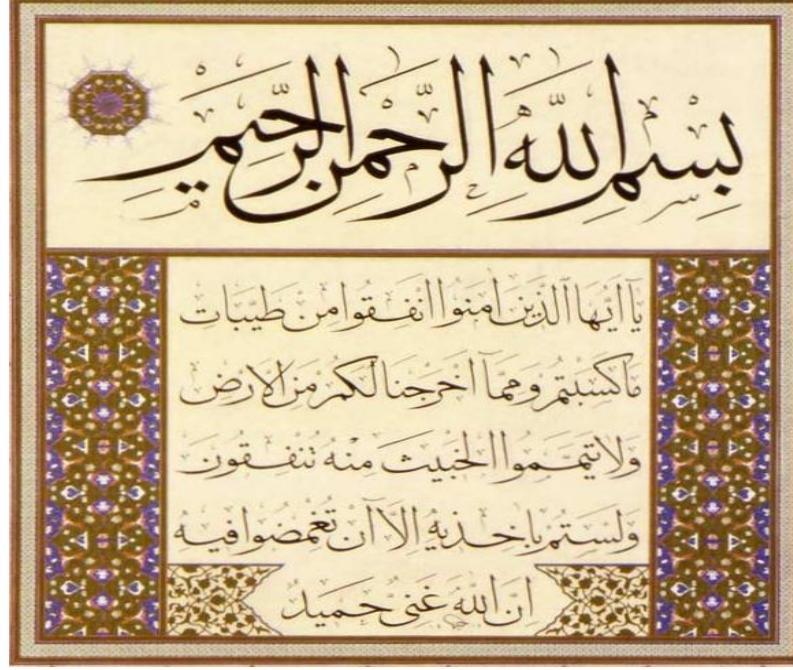 بِسْمِ اللهِ الرَّحْمٰنِ الرَّحِيْمِ
يَآ اَيُّهَا الَّذِينَ اٰمَنُوا اَنْفِقُوا مِنْ طَيِّبَاتِ
مَا كَسَبْتُمْ وَمِمَّآ اَخْرَجْنَا لَكُمْ مِنَ الْاَرْضِ
وَلَا تَيَمَّمُوا الْخَبِيثَ مِنْهُ تُنْفِقُونَ
وَلَسْتُمْ بِاٰخِذِيهِ اِلَّآ اَنْ تُغْمِضُوا فِيهِ
اِنَّ اللهَ غَنِيٌّ حَمِيدٌ